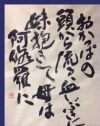 おかっぱの
頭から流る血しぶきに
妹抱きて母は
阿修羅に